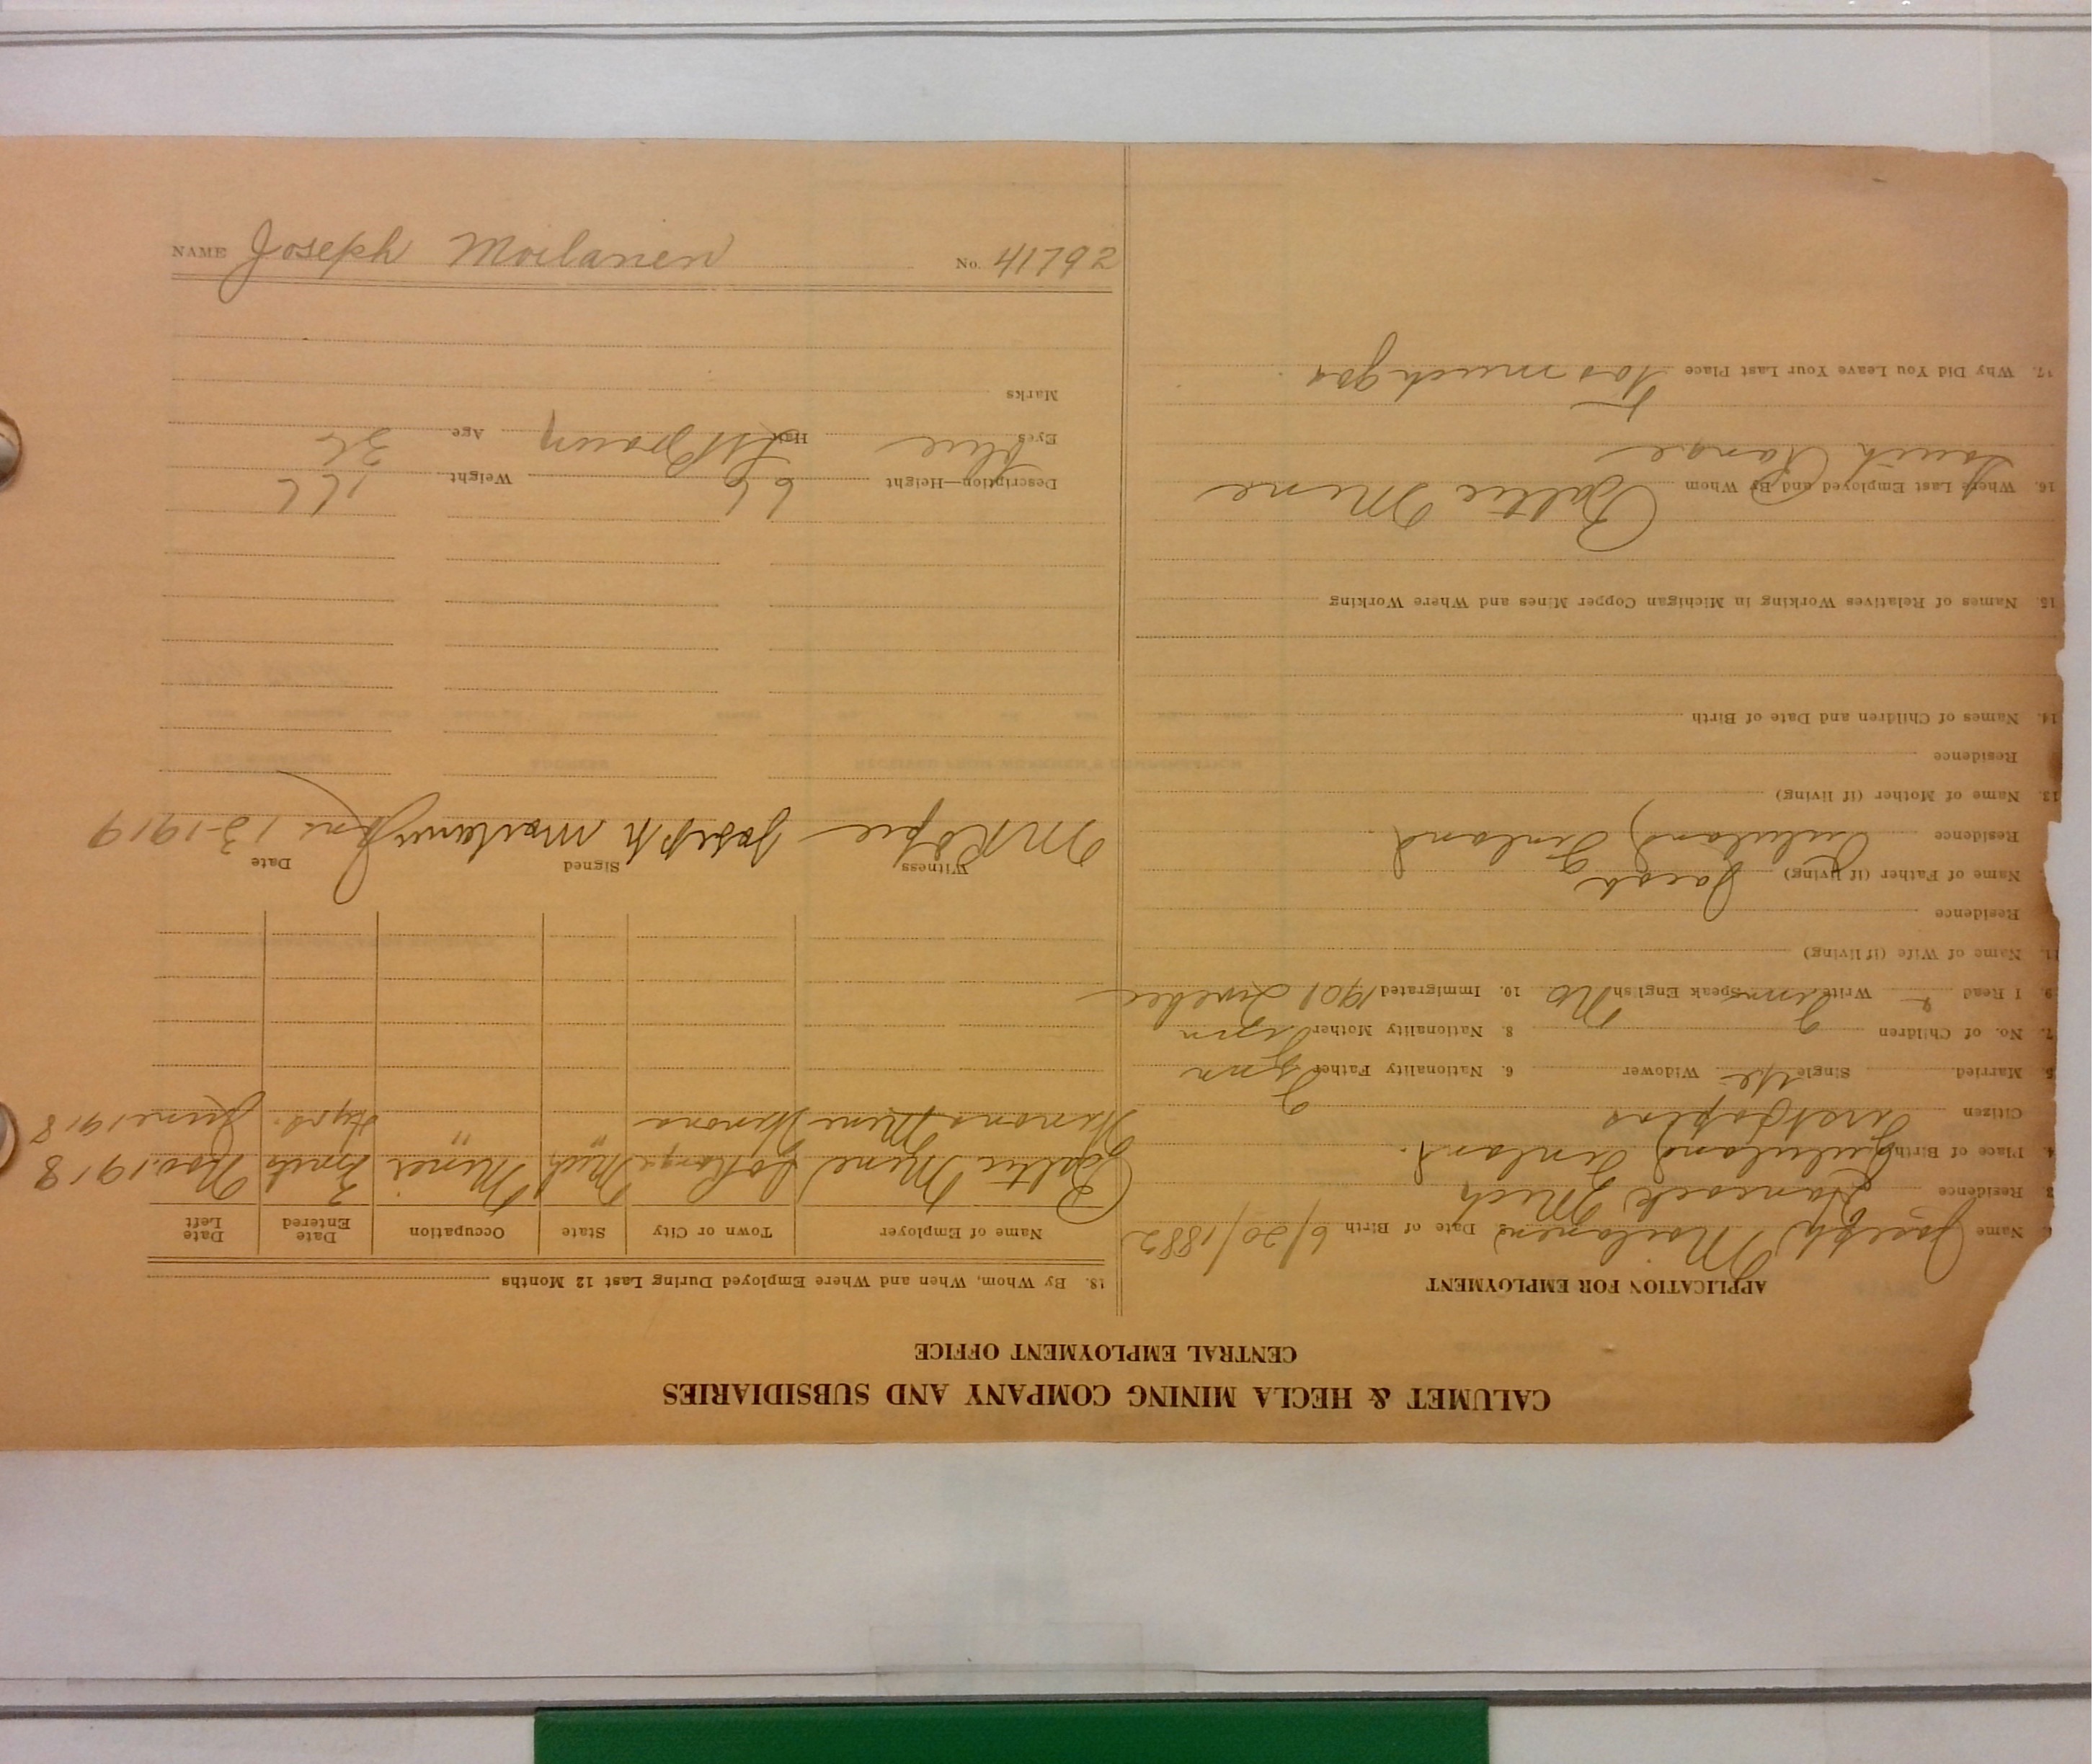 CALUMET & HECLA MINING COMPANY AND SUBSIDIARIES
CENTRAL EMPLOYMENT OFFICE
APPLICATION FOR EMPLOYMENT
Name Joseph Moilanen Date of Birth 6/20/1882
3. Residence Hancock, Mich
4. Place of Birth Finland.
Citizen First papers
5. Married Single yes Widower 6. Nationality Father Finn
7. No. of Children 8. Nationality Mother Finn
9. I Read & Write Finn Speak English No 10. Immigrated 1901 Quebec
11. Name of Wife (if living)
Residence
Name of Father (if living) Jacob
Residence Finland
13. Name of Mother (if living)
Residence
14. Names of Children and Date of Birth
15. Names of Relatives Working in Michigan Copper Mines and Where Working
16. Where Last Employed and By Whom Baltic Mine
South Range
17. Why Did You Leave Your Last Place Too much gas
18. By Whom, When and Where Employed During Last 12 Months
Name of Employer Town or City State Occupation Date Entered Date Left
Baltic Mine So Range Mich Miner 3 mos Nov. 1918
Hanona Mine Hanona " " 4 yrs. June 1918
Witness Signed Joseph Moilanen Date Jan 13-1919
Description—Height 66 Weight 166
Eyes blue Hair Lt Brown Age 36
Marks
NAME Joseph Moilanen No. 41792